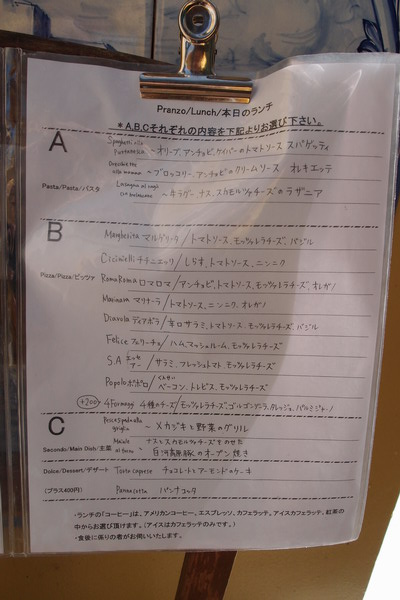 Pranzo/Lunch/本日のランチ
＊A,B,Cそれぞれの内容を下記よりお選び下さい。
A
Pasta/Pasta/パスタ
Spaghetti alla
Puttanesca ～オリーブ、アンチョビ、ケイパーのトマトソース スパゲッティ
Orecchiette
～ブロッコリー、アンチョビのクリームソース オレキエッテ
Lasagna al ragù
～牛ラグー、ナス、スカモルツァチーズのラザニア
B
Pizza/Pizza/ピッツァ
Margherita マルゲリータ/トマトソース、モッツァレラチーズ、バジル
Cicinielli チチニエッリ/しらす、トマトソース、ニンニク
RomaRoma ロマロマ/アンチョビ、トマトソース、モッツァレラチーズ、オレガノ
Marinara マリナーラ/トマトソース、ニンニク、オレガノ
Diavola ディアボラ/辛口サラミ、トマトソース、モッツァレラチーズ、バジル
Felice フェリーチェ/ハム、マッシュルーム、モッツァレラチーズ
S.A エッセアー/サラミ、フレッシュトマト、モッツァレラチーズ
Popolo ポポロ/ベーコン、トレビス、モッツァレラチーズ
+200 4Formaggi 4種のチーズ/モッツァレラチーズ、ゴルゴンゾーラ、タレッジョ、パルミジャーノ
C
Secondo/Main Dish/主菜
Pesce spada alla
griglia ～メカジキと野菜のグリル
Maiale
al forno ～ナスとスカモルツァチーズをのせた
白河高原豚のオーブン焼き
Dolce/Dessert/デザート
Torta caprese チョコレートとアーモンドのケーキ
(プラス400円)
Pannacotta パンナコッタ
・ランチの「コーヒー」は、アメリカンコーヒー、エスプレッソ、カフェラッテ、アイスカフェラッテ、紅茶の
中からお選び頂けます。(アイスはカフェラッテのみです。)
・食後に係りの者がお伺いいたします。